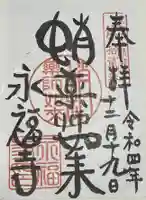 奉拝
令和四年
十二月十九日
蛸薬師如来
永福寺